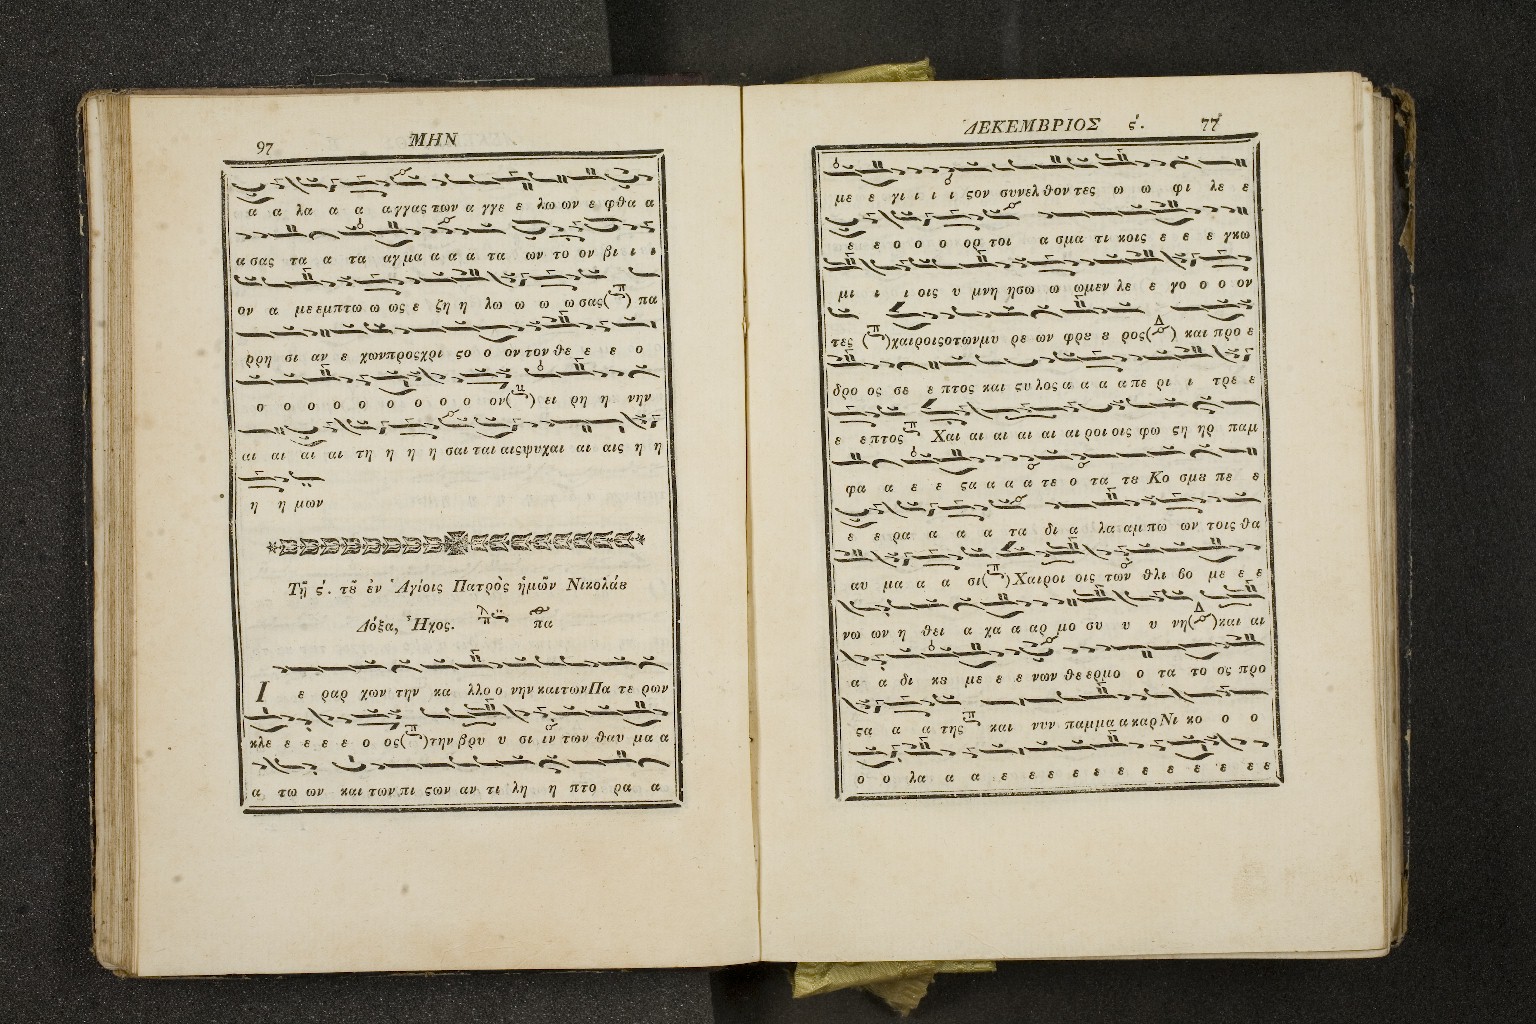 97 ΜΗΝ
α α λα α α α γγας των α γγε ε λω ων ε φθα α
α σας τα α τα αγ μα α α α τα ων το ον βι ι ι
ον α με εμπτω ω ως ε ζη η λω ω ω ω σας(π) πα
ρρη σι αν ε χων προς χρι ϛο ο ον τον θε ε ε ο
ο ο ο ο ο ο ο ο ο ο ον( ) ει ρη η νην
αι αι αι αι τη η η η σαι ται αις ψυχαι αι αις η η
η η μων
Τῇ ϛ́. τȣ̃ ἐν Ἁγίοις Πατρὸς ἡμῶν Νικολάȣ
Δόξα, Ἦχος. πα
Ι ε ραρ χων την κα λλο ο νην και των Πα τε ρων
κλε ε ε ε ε ο ος(π)την βρυ υ σι ιν των θαυ μα α
α τω ων και των πι ϛων αν τι λη η πτο ρα α
ΔΕΚΕΜΒΡΙΟΣ ϛ́. 77
με ε γι ι ι ι ϛον συνελ θον τες ω ω φι λε ε
ε ε ο ο ο ορ τοι α σμα τι κοις ε ε ε γκω
μι ι ι οις υ μνη ησω ω ωμεν λε ε γο ο ο ον
τες (π)χαιροιςοτωνμυ ρε ων φρȣ ȣ ρος(Δ) και προ ε
δρο ος σε ε πτος και ϛυ λος α α α απε ρι ι τρε ε
ε επτος π Χαι αι αι αι αι αι ροι οις φω ϛη ηρ παμ
φα α ε ε ϛα α α α τε ο τα τȣ Κο σμȣ πε ε
ε ε ρα α α α τα δι α λα αμ πω ων τοις θα
αυ μα α α σι(π)Χαιροι οις των θλι βο με ε ε
νω ων η θει α χα α αρ μο συ υ υ νη(Δ)και αι
α α δι κȣ με ε ε νων θε ερμο ο τα το ος προ
ϛα α α της π και νυν παμμα α καρ Νι κο ο ο
ο ο λα α α ε ε ε ε ε ε ε ε ε ε ε ε